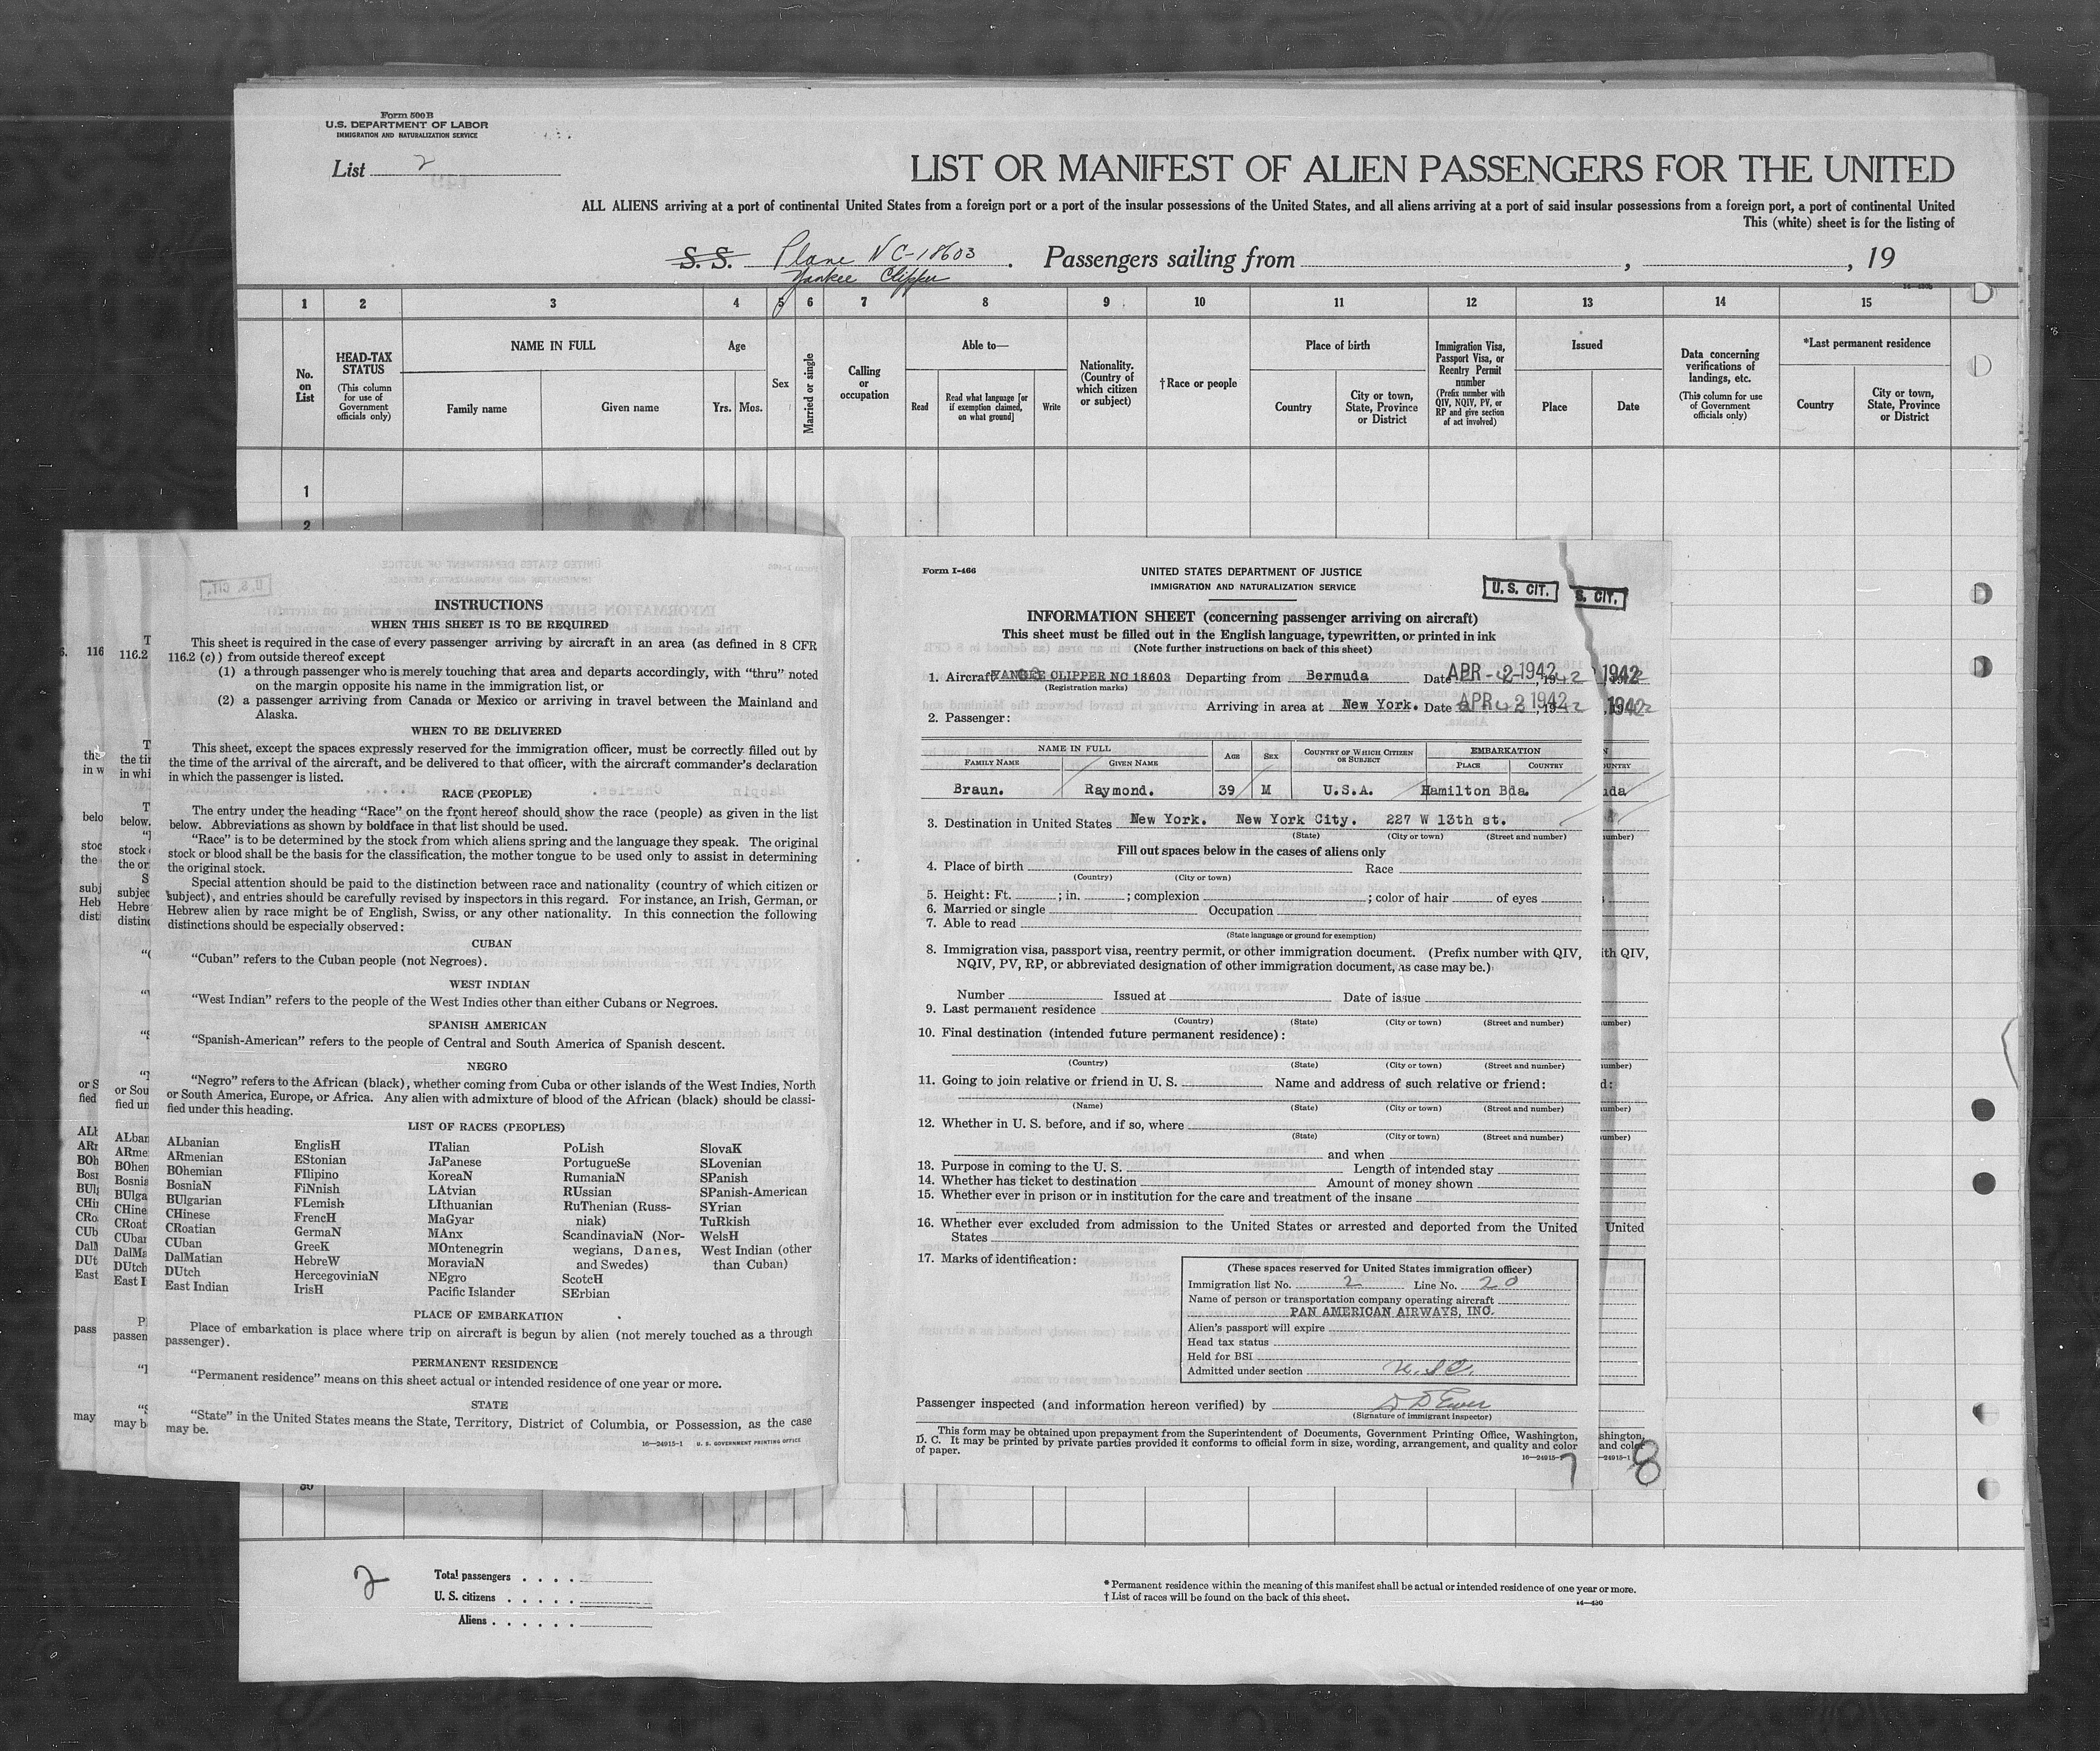 Form 500 B
U.S. DEPARTMENT OF LABOR
IMMIGRATION AND NATURALIZATION SERVICE
List 2
LIST OR MANIFEST OF ALIEN PASSENGERS FOR THE UNITED
ALL ALIENS arriving at a port of continental United States from a foreign port or a port of the insular possessions of the United States, and all aliens arriving at a port of said insular possessions from a foreign port, a port of continental United
This (white) sheet is for the listing of
S. S. Plane NC-18603 . Passengers sailing from , , 19
Yankee Clipper
1 2 3 4 5 6 7 8 9 10 11 12 13 14 15
No. on List
HEAD-TAX STATUS (This column for use of Government officials only)
NAME IN FULL
Family name
Given name
Age
Yrs. Mos.
Sex
Married or single
Calling or occupation
Able to—
Read
Read what language [or if exemption claimed, on what ground]
Write
Nationality. (Country of which citizen or subject)
†Race or people
Place of birth
Country
City or town, State, Province or District
Immigration Visa, Passport Visa, or Reentry Permit number (Prefix number with QIV, NQIV, PV, or RP and give section of act involved)
Issued
Place
Date
Data concerning verifications of landings, etc. (This column for use of Government officials only)
*Last permanent residence
Country
City or town, State, Province or District
1
2
INSTRUCTIONS
WHEN THIS SHEET IS TO BE REQUIRED
This sheet is required in the case of every passenger arriving by aircraft in an area (as defined in 8 CFR
116.2 (c)) from outside thereof except
(1) a through passenger who is merely touching that area and departs accordingly, with "thru" noted
on the margin opposite his name in the immigration list, or
(2) a passenger arriving from Canada or Mexico or arriving in travel between the Mainland and
Alaska.
WHEN TO BE DELIVERED
This sheet, except the spaces expressly reserved for the immigration officer, must be correctly filled out by
the time of the arrival of the aircraft, and be delivered to that officer, with the aircraft commander's declaration
in which the passenger is listed.
RACE (PEOPLE)
The entry under the heading "Race" on the front hereof should show the race (people) as given in the list
below. Abbreviations as shown by boldface in that list should be used.
"Race" is to be determined by the stock from which aliens spring and the language they speak. The original
stock or blood shall be the basis for the classification, the mother tongue to be used only to assist in determining
the original stock.
Special attention should be paid to the distinction between race and nationality (country of which citizen or
subject), and entries should be carefully revised by inspectors in this regard. For instance, an Irish, German, or
Hebrew alien by race might be of English, Swiss, or any other nationality. In this connection the following
distinctions should be especially observed:
CUBAN
"Cuban" refers to the Cuban people (not Negroes).
WEST INDIAN
"West Indian" refers to the people of the West Indies other than either Cubans or Negroes.
SPANISH AMERICAN
"Spanish-American" refers to the people of Central and South America of Spanish descent.
NEGRO
"Negro" refers to the African (black), whether coming from Cuba or other islands of the West Indies, North
or South America, Europe, or Africa. Any alien with admixture of blood of the African (black) should be classi-
fied under this heading.
LIST OF RACES (PEOPLES)
ALbanian
ARmenian
BOhemian
BosniaN
BUlgarian
CHinese
CRoatian
CUban
DalMatian
DUtch
East Indian
EnglisH
EStonian
FIlipino
FiNnish
FLemish
FrencH
GermaN
GreeK
HebreW
HercegoviniaN
IrisH
ITalian
JaPanese
KoreaN
LAtvian
LIthuanian
MaGyar
MAnx
MOntenegrin
MoraviaN
NEgro
Pacific Islander
PoLish
PortugueSe
RumaniaN
RUssian
RuThenian (Russ-
niak)
ScandinaviaN (Nor-
wegians, Danes,
and Swedes)
ScotcH
SErbian
SlovaK
SLovenian
SPanish
SPanish-American
SYrian
TuRkish
WelsH
West Indian (other
than Cuban)
PLACE OF EMBARKATION
Place of embarkation is place where trip on aircraft is begun by alien (not merely touched as a through
passenger).
PERMANENT RESIDENCE
"Permanent residence" means on this sheet actual or intended residence of one year or more.
STATE
"State" in the United States means the State, Territory, District of Columbia, or Possession, as the case
may be.
16—24915-1 U. S. GOVERNMENT PRINTING OFFICE
Form I-466
UNITED STATES DEPARTMENT OF JUSTICE
IMMIGRATION AND NATURALIZATION SERVICE
U. S. CIT.
S. CIT.
INFORMATION SHEET (concerning passenger arriving on aircraft)
This sheet must be filled out in the English language, typewritten, or printed in ink
(Note further instructions on back of this sheet)
1. Aircraft YANKEE CLIPPER NC 18603 Departing from Bermuda Date APR - 2 1942
(Registration marks)
Arriving in area at New York. Date APR 2 1942
2. Passenger:
NAME IN FULL
FAMILY NAME
GIVEN NAME
AGE
SEX
COUNTRY OF WHICH CITIZEN OR SUBJECT
EMBARKATION
PLACE COUNTRY
Braun. Raymond. 39 M U.S.A. Hamilton Bda.
3. Destination in United States New York. New York City. 227 W 13th st.
(State) (City or town) (Street and number)
Fill out spaces below in the cases of aliens only
4. Place of birth Race
(Country) (City or town)
5. Height: Ft. ; in. ; complexion ; color of hair of eyes
6. Married or single Occupation
7. Able to read
(State language or ground for exemption)
8. Immigration visa, passport visa, reentry permit, or other immigration document. (Prefix number with QIV,
NQIV, PV, RP, or abbreviated designation of other immigration document, as case may be.)
Number Issued at Date of issue
9. Last permanent residence
(Country) (State) (City or town) (Street and number)
10. Final destination (intended future permanent residence):
(Country) (State) (City or town) (Street and number)
11. Going to join relative or friend in U. S. Name and address of such relative or friend:
(Name) (State) (City or town) (Street and number)
12. Whether in U. S. before, and if so, where
(State) (City or town) (Street and number)
and when
13. Purpose in coming to the U. S. Length of intended stay
14. Whether has ticket to destination Amount of money shown
15. Whether ever in prison or in institution for the care and treatment of the insane
16. Whether ever excluded from admission to the United States or arrested and deported from the United
States
17. Marks of identification:
(These spaces reserved for United States immigration officer)
Immigration list No. 2 Line No. 20
Name of person or transportation company operating aircraft
PAN AMERICAN AIRWAYS, INC.
Alien's passport will expire
Head tax status
Held for BSI
Admitted under section U.S.C.
Passenger inspected (and information hereon verified) by
(Signature of immigrant inspector)
This form may be obtained upon prepayment from the Superintendent of Documents, Government Printing Office, Washington,
D. C. It may be printed by private parties provided it conforms to official form in size, wording, arrangement, and quality and color
of paper.
7
8
30
2
Total passengers . . . .
U. S. citizens . . . . .
Aliens . . . . . .
* Permanent residence within the meaning of this manifest shall be actual or intended residence of one year or more.
† List of races will be found on the back of this sheet.
14—430